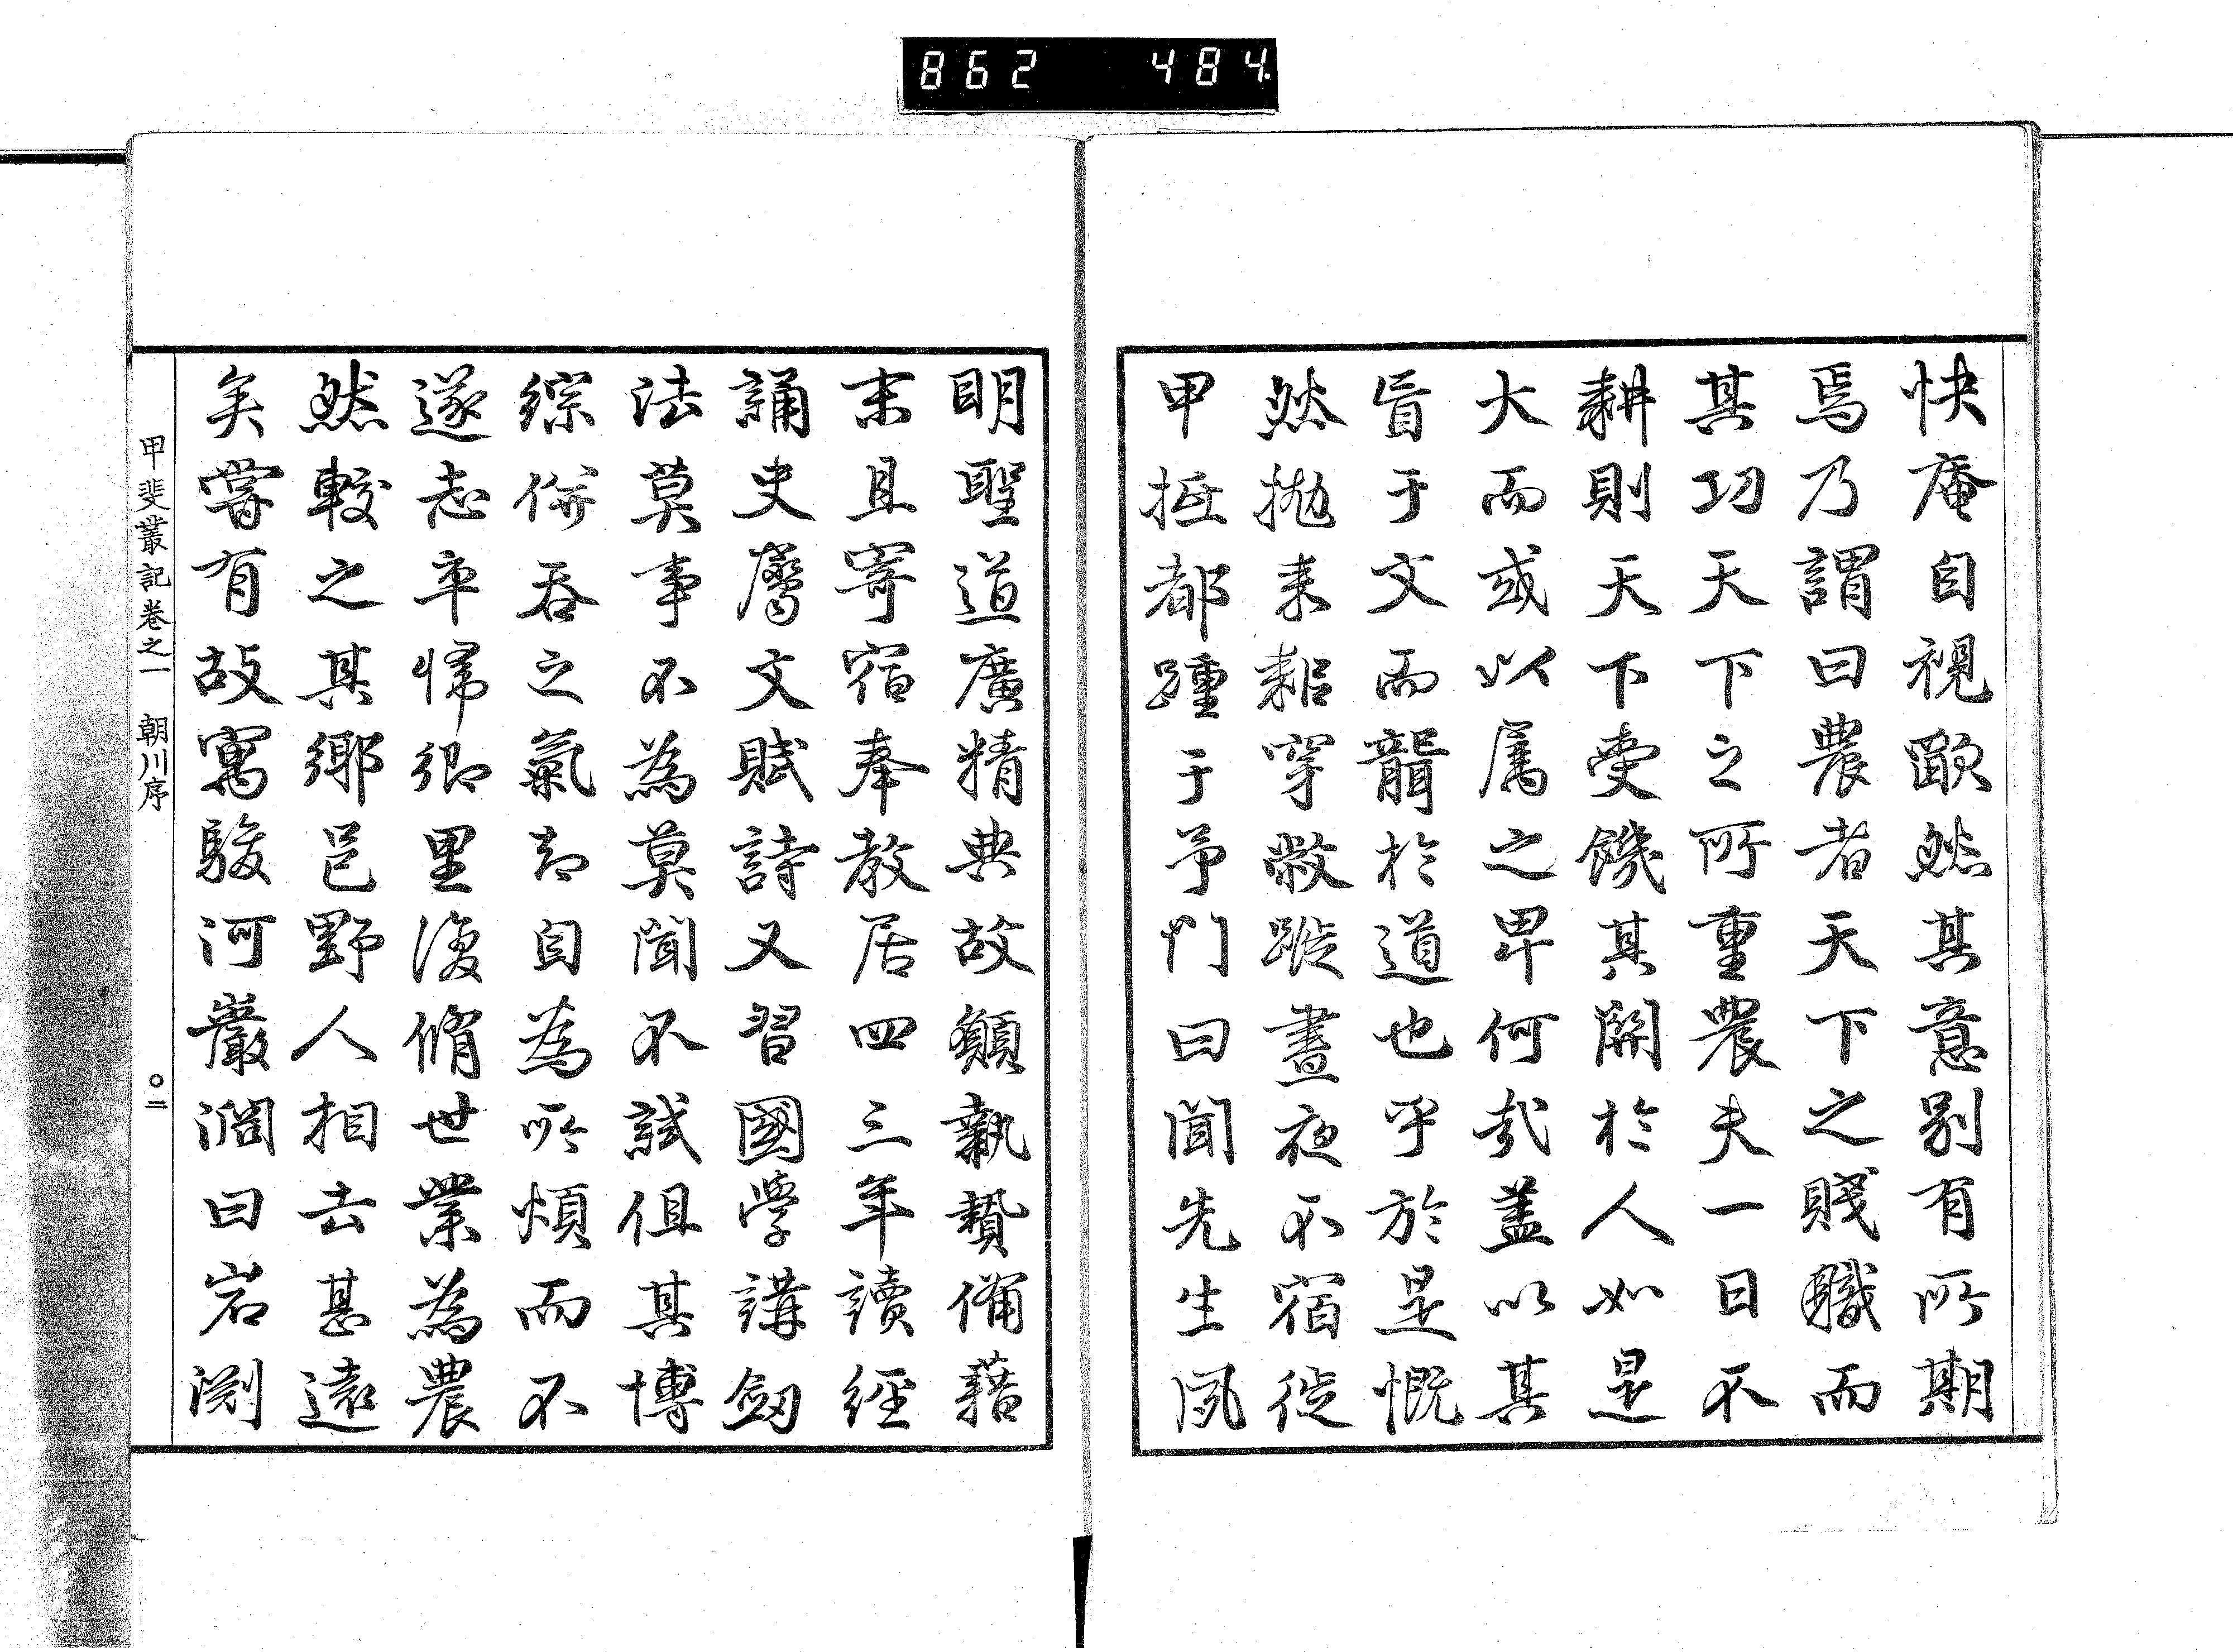 862 484
快庵自視歐然其意別有所期
焉乃謂曰農者天下之賤職而
其功天下之所重農夫一日不
耕則天下受饑其關於人如是
大而或以属之卑何哉蓋以其
盲于文而聾於道也乎於是慨
然拋耒耜穿敝蹤晝夜不宿徒
甲抵都踵于予門曰聞先生夙
明聖道廣精典故願執贄備藉
末且寄宿奉教居四三年讀經
誦史屬文賦詩又習國學講劔
法莫事不為莫聞不試但其博
綜併吞之氣却自為所煩而不
遂志卒帰鄉里復脩世業為農
然較之其鄉邑野人相去甚遠
矣嘗有故寓駿河巖淵曰岩渕
甲斐叢記卷之一 朝川序 〇二